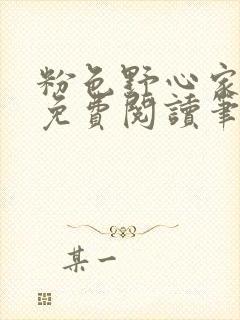 粉色野心家
免費閱讀筆
某一